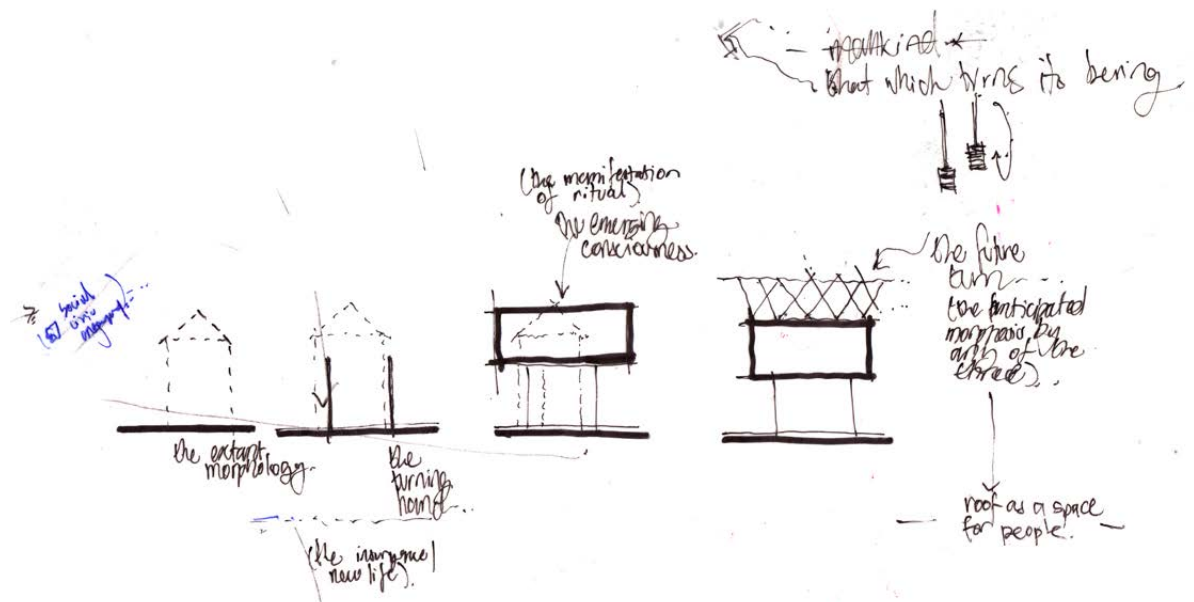 mankind
that which turns its being
(the manifestation
of ritual)
the emerging
consciousness.
the future
turn
(the anticipated
morphosis by
any of the
three)
(by social
civic
the extant
morphology.
the
turning
hand
(the insurgence/
new life).
roof as a space
for people.